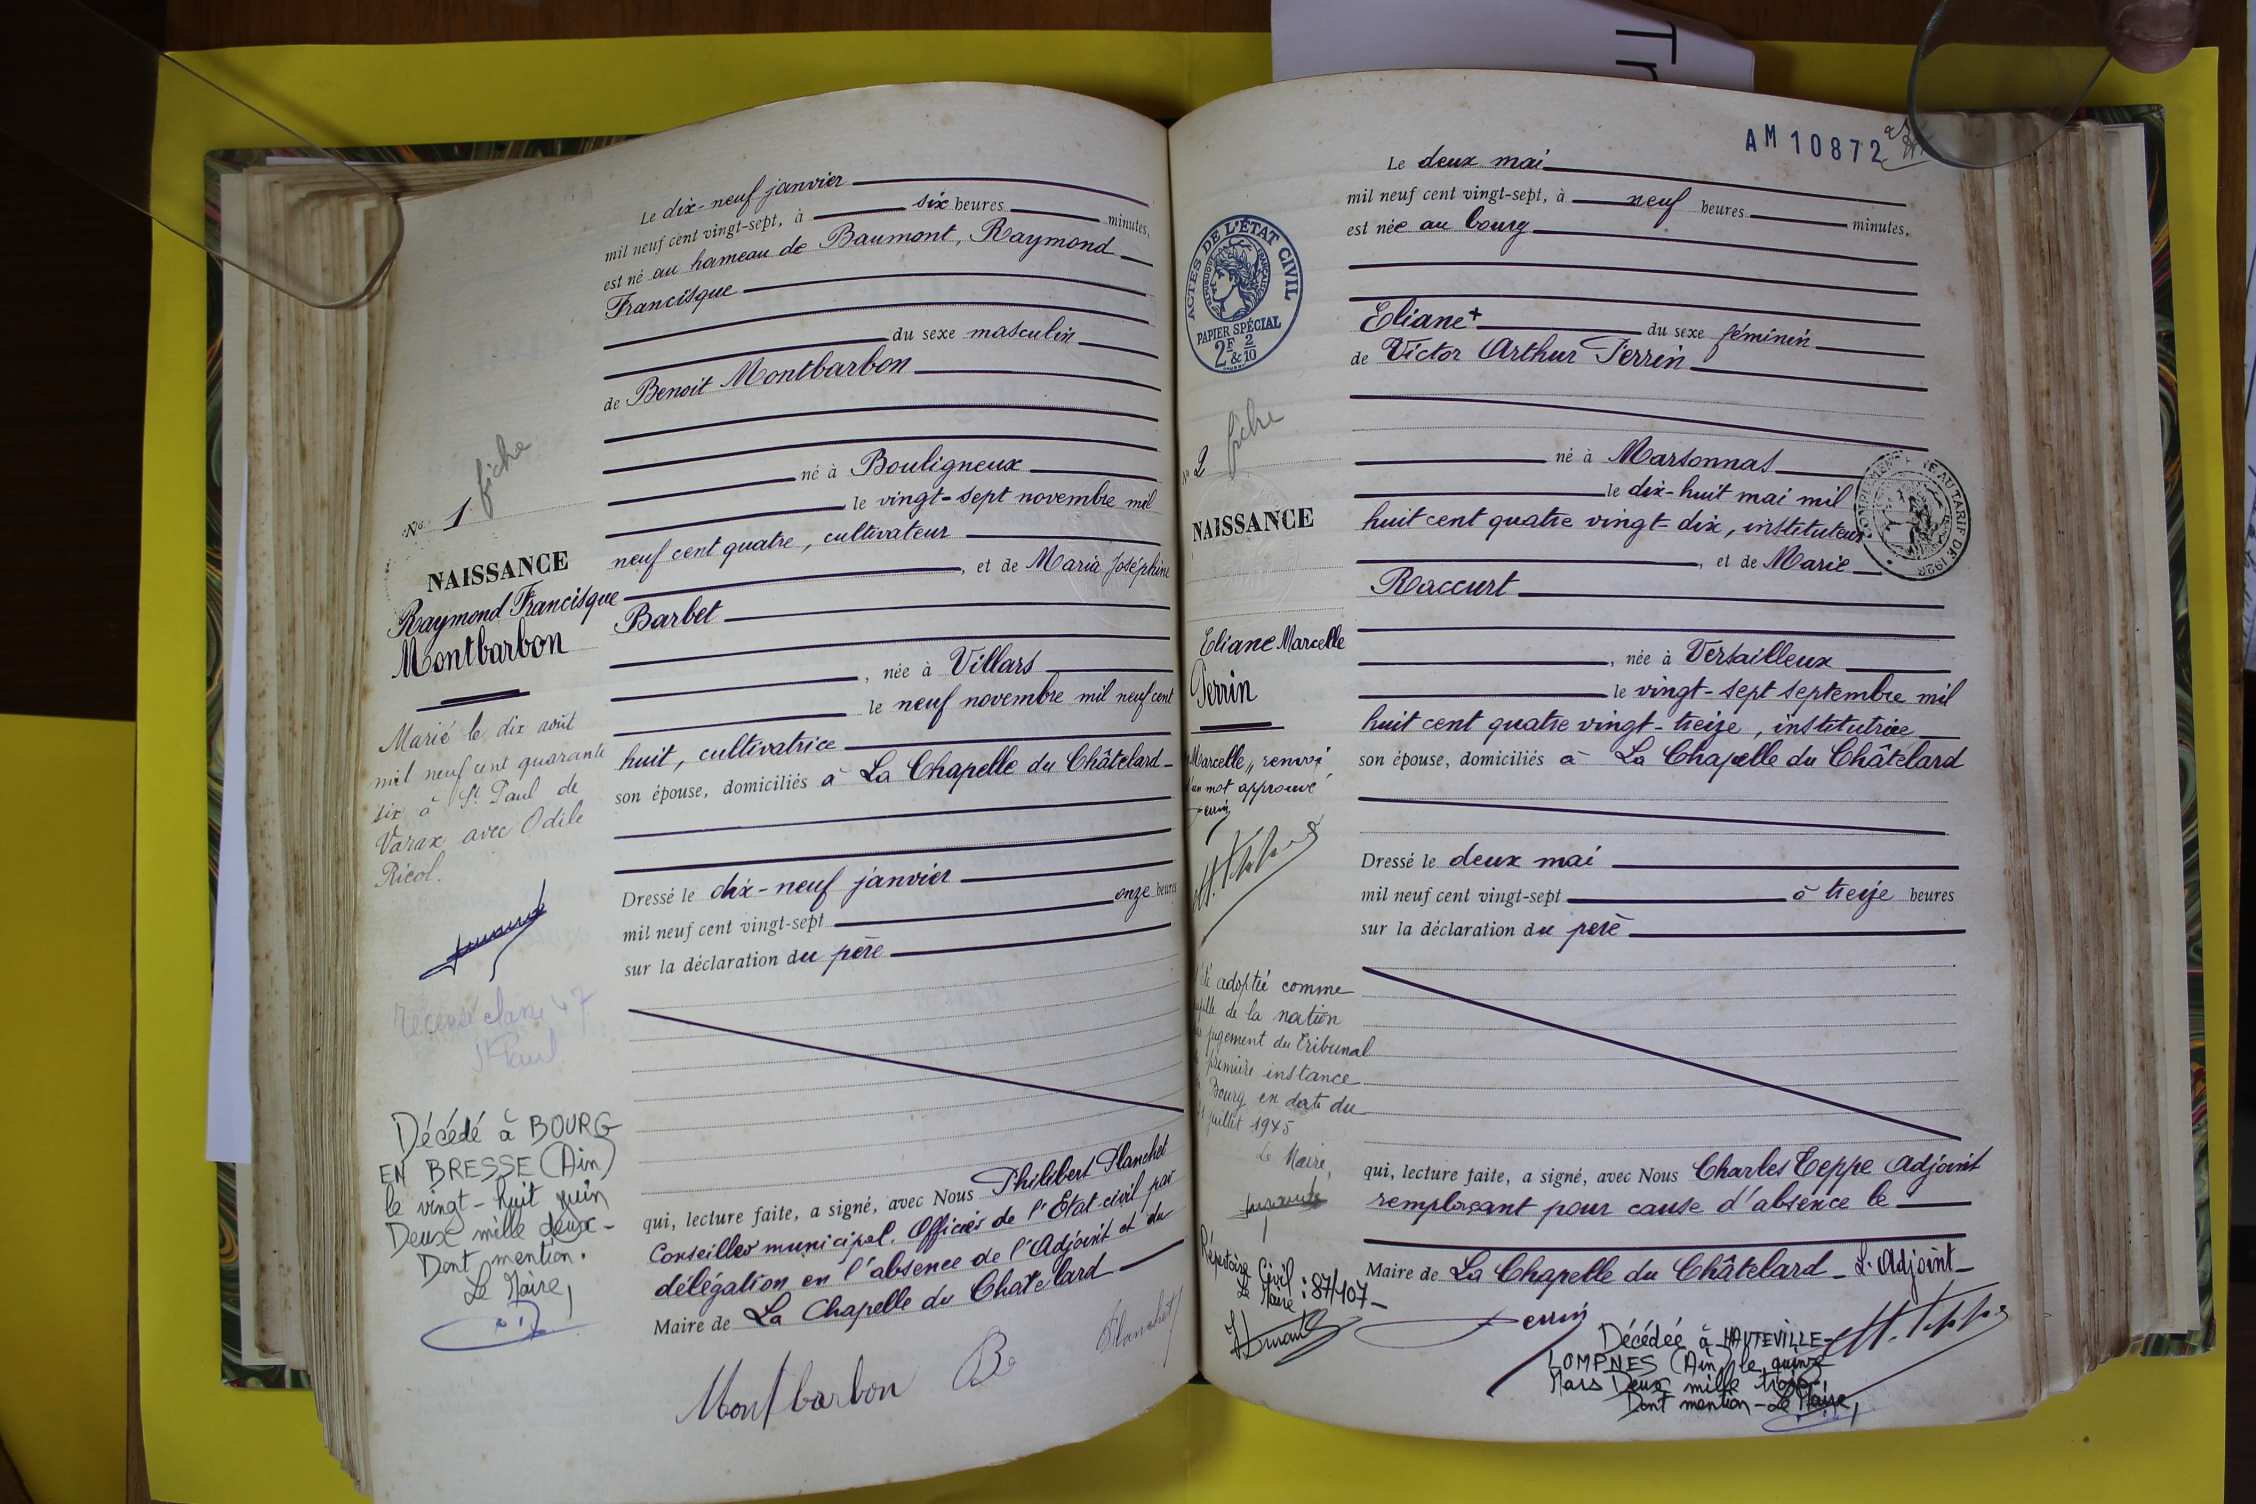 Tr
N° 1
fiche
NAISSANCE
Raymond Francisque
Montbarbon
Marié le dix août
mil neuf cent quarante
six à St Paul de
Varax avec Odile
Ricol.
recensé classe 47
St Paul
Décédé à BOURG
EN BRESSE (Ain)
le vingt-huit juin
Deux mille deux-
Dont mention.
Le Maire,
Le dix-neuf janvier
mil neuf cent vingt-sept, à six heures minutes,
est né au hameau de Baumont, Raymond
Francisque
du sexe masculin
de Benoit Montbarbon
né à Bouligneux
le vingt-sept novembre mil
neuf cent quatre, cultivateur
, et de Maria Joséphine
Barbet
, née à Villars
le neuf novembre mil neuf cent
huit, cultivatrice
son épouse, domiciliés à La Chapelle du Châtelard
Dressé le dix-neuf janvier
mil neuf cent vingt-sept onze heures
sur la déclaration du père
qui, lecture faite, a signé, avec Nous Philibert Planchet
Conseiller municipal. Officier de l'Etat civil par
délégation en l'absence de l'Adjoint et du
Maire de La Chapelle du Chatelard
Montbarbon Be Planchet
AM 10872
ACTES DE L'ÉTAT CIVIL
RÉPUBLIQUE FRANÇAISE
PAPIER SPÉCIAL
2F 2
& 10
N° 2
fiche
NAISSANCE
Eliane Marcelle
Perrin
Marcelle,, renvoi
d'un mot approuvé
Perrin
adoptée comme
pupille de la nation
jugement du Tribunal
première instance
Bourg en date du
juillet 1945
Le Maire,
Répertoire Civil : 87/107-
Le Maire
Le deux mai
mil neuf cent vingt-sept, à neuf heures minutes,
est née au bourg
Eliane+ du sexe féminin
de Victor Arthur Perrin
né à Marsonnas
le dix-huit mai mil
huit cent quatre vingt-dix, instituteur
AU TARIF DE 1926
, et de Marie
Raccurt
, née à Versailleux
le vingt-sept septembre mil
huit cent quatre vingt-treize, institutrice
son épouse, domiciliés à La Chapelle du Châtelard
Dressé le deux mai
mil neuf cent vingt-sept à treize heures
sur la déclaration du père
qui, lecture faite, a signé, avec Nous Charles Teppe Adjoint
remplaçant pour cause d'absence le
Maire de La Chapelle du Châtelard - L'Adjoint-
Perrin
Décédée à HAUTEVILLE-
LOMPNES (Ain) le quinze
Mars Deux mille trois,
Dont mention - Le Maire,